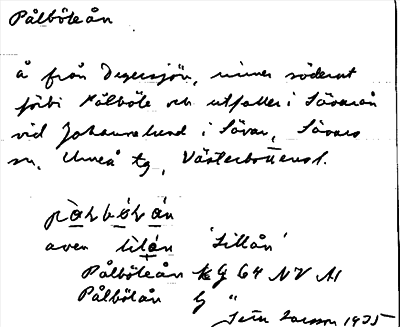 Pålböleån
å från Degersjön, rinner söderut
förbi Pålböle och utfaller i Sävarån
vid Johannelund i Sävar, Sävars
sn, Umeå tg, Västerbottens l.
även 'Lillån'
Pålböleån G 64 NV
Pålbölån G "
Larsson 1935